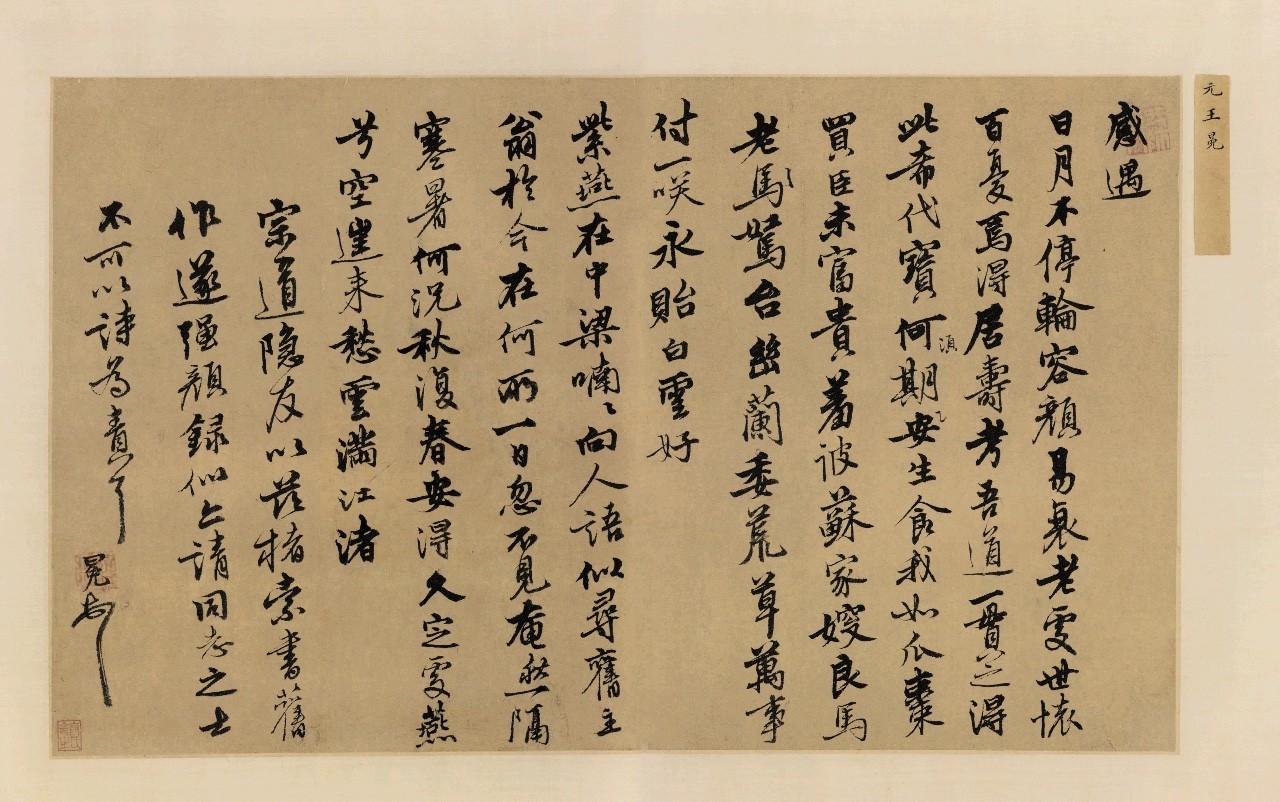 元王冕
感遇
日月不停輪容顏易衰老處世懷
百憂焉得居壽考吾道一貫之得
此希代寶何須期安生食我如瓜棗
買臣未富貴羞被蘇家嫂良馬
老馬駑台幽蘭委荒草萬事
付一咲永貽白雲好
紫燕在中梁喃〻向人語似尋舊主
翁於今在何所一日忽不見奄然隔
寒暑何況秋復春安得久定處燕
兮空還來愁雲滿江渚
宗道隐友以茲楮索書舊
作遂强顏録似上請同志之士
不可以詩為責了
冕